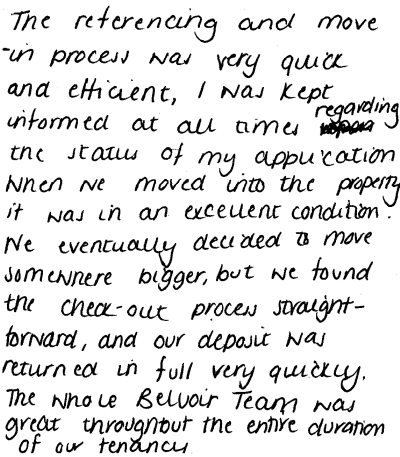 The referencing and move
-in process was very quick
and efficient, I was kept
informed at all times regarding
the status of my application
When we moved into the property
it was in an excellent condition.
We eventually decided to move
somewhere bigger, but we found
the check-out process straight-
forward, and our deposit was
returned in full very quickly.
The whole Belvoir Team was
great throughout the entire duration
of our tenancy